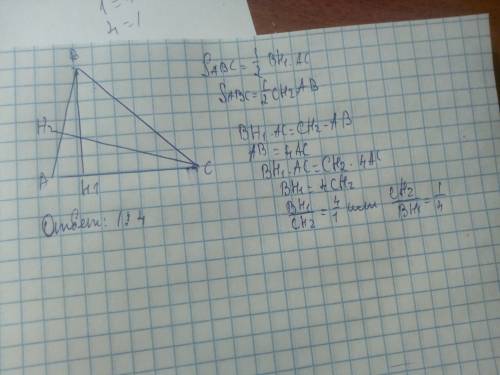 1 =
4 = 1
B
H2
A
H1
C
Ответ: 1:4
SABC = 1/2 BH1 · AC
SABC = 1/2 CH2 AB
BH1 · AC = CH2 · AB
AB = 4AC
BH1 · AC = CH2 · 4AC
BH1 = 4CH2
BH1/CH2 = 4/1 или CH2/BH1 = 1/4